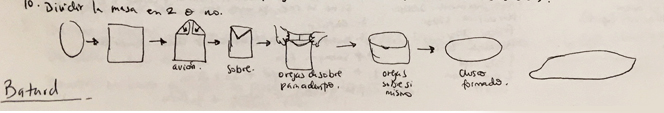 10. Dividir la masa en 2 o no.
avión.
sobre.
orejas d sobre
para adentro.
orejas
sobre si
mismo
formado.
Batard